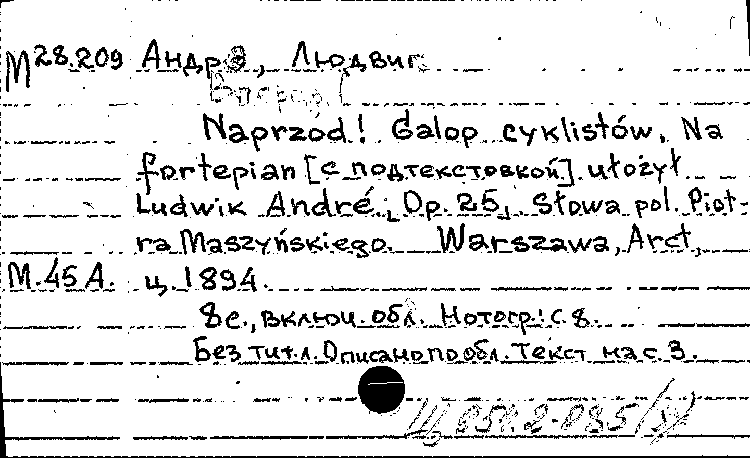 М 28.209 Андрэ, Людвиг.
Вперед!
Naprzod! Galop cyklistów, Na
fortepian [с подтекстовкой] ułożył
Ludwik André, Op. 25, Słowa pol. Piot-
ra Maszyńskiego. Warszawa, Arct,
М.45А. ц. 1894.
8с., включ. обл. Нотогр.: с. 8.
Без тит.л. Описано по обл. Текст на с. 3.